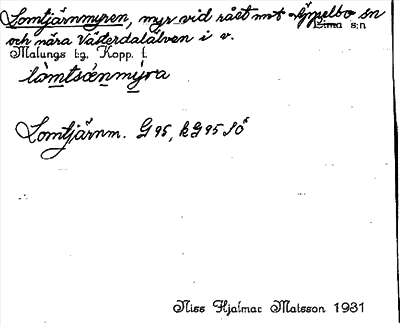 Lomtjärnmyren, myr vid rået mot Äppelbo sn
Lima s:n
och nära Västerdalälven i v.
Malungs t:g, Kopp. l.
lòmtsǽnmýra
Lomtjärnm. G95, kG95 SÖ
Niss Hjalmar Matsson 1931